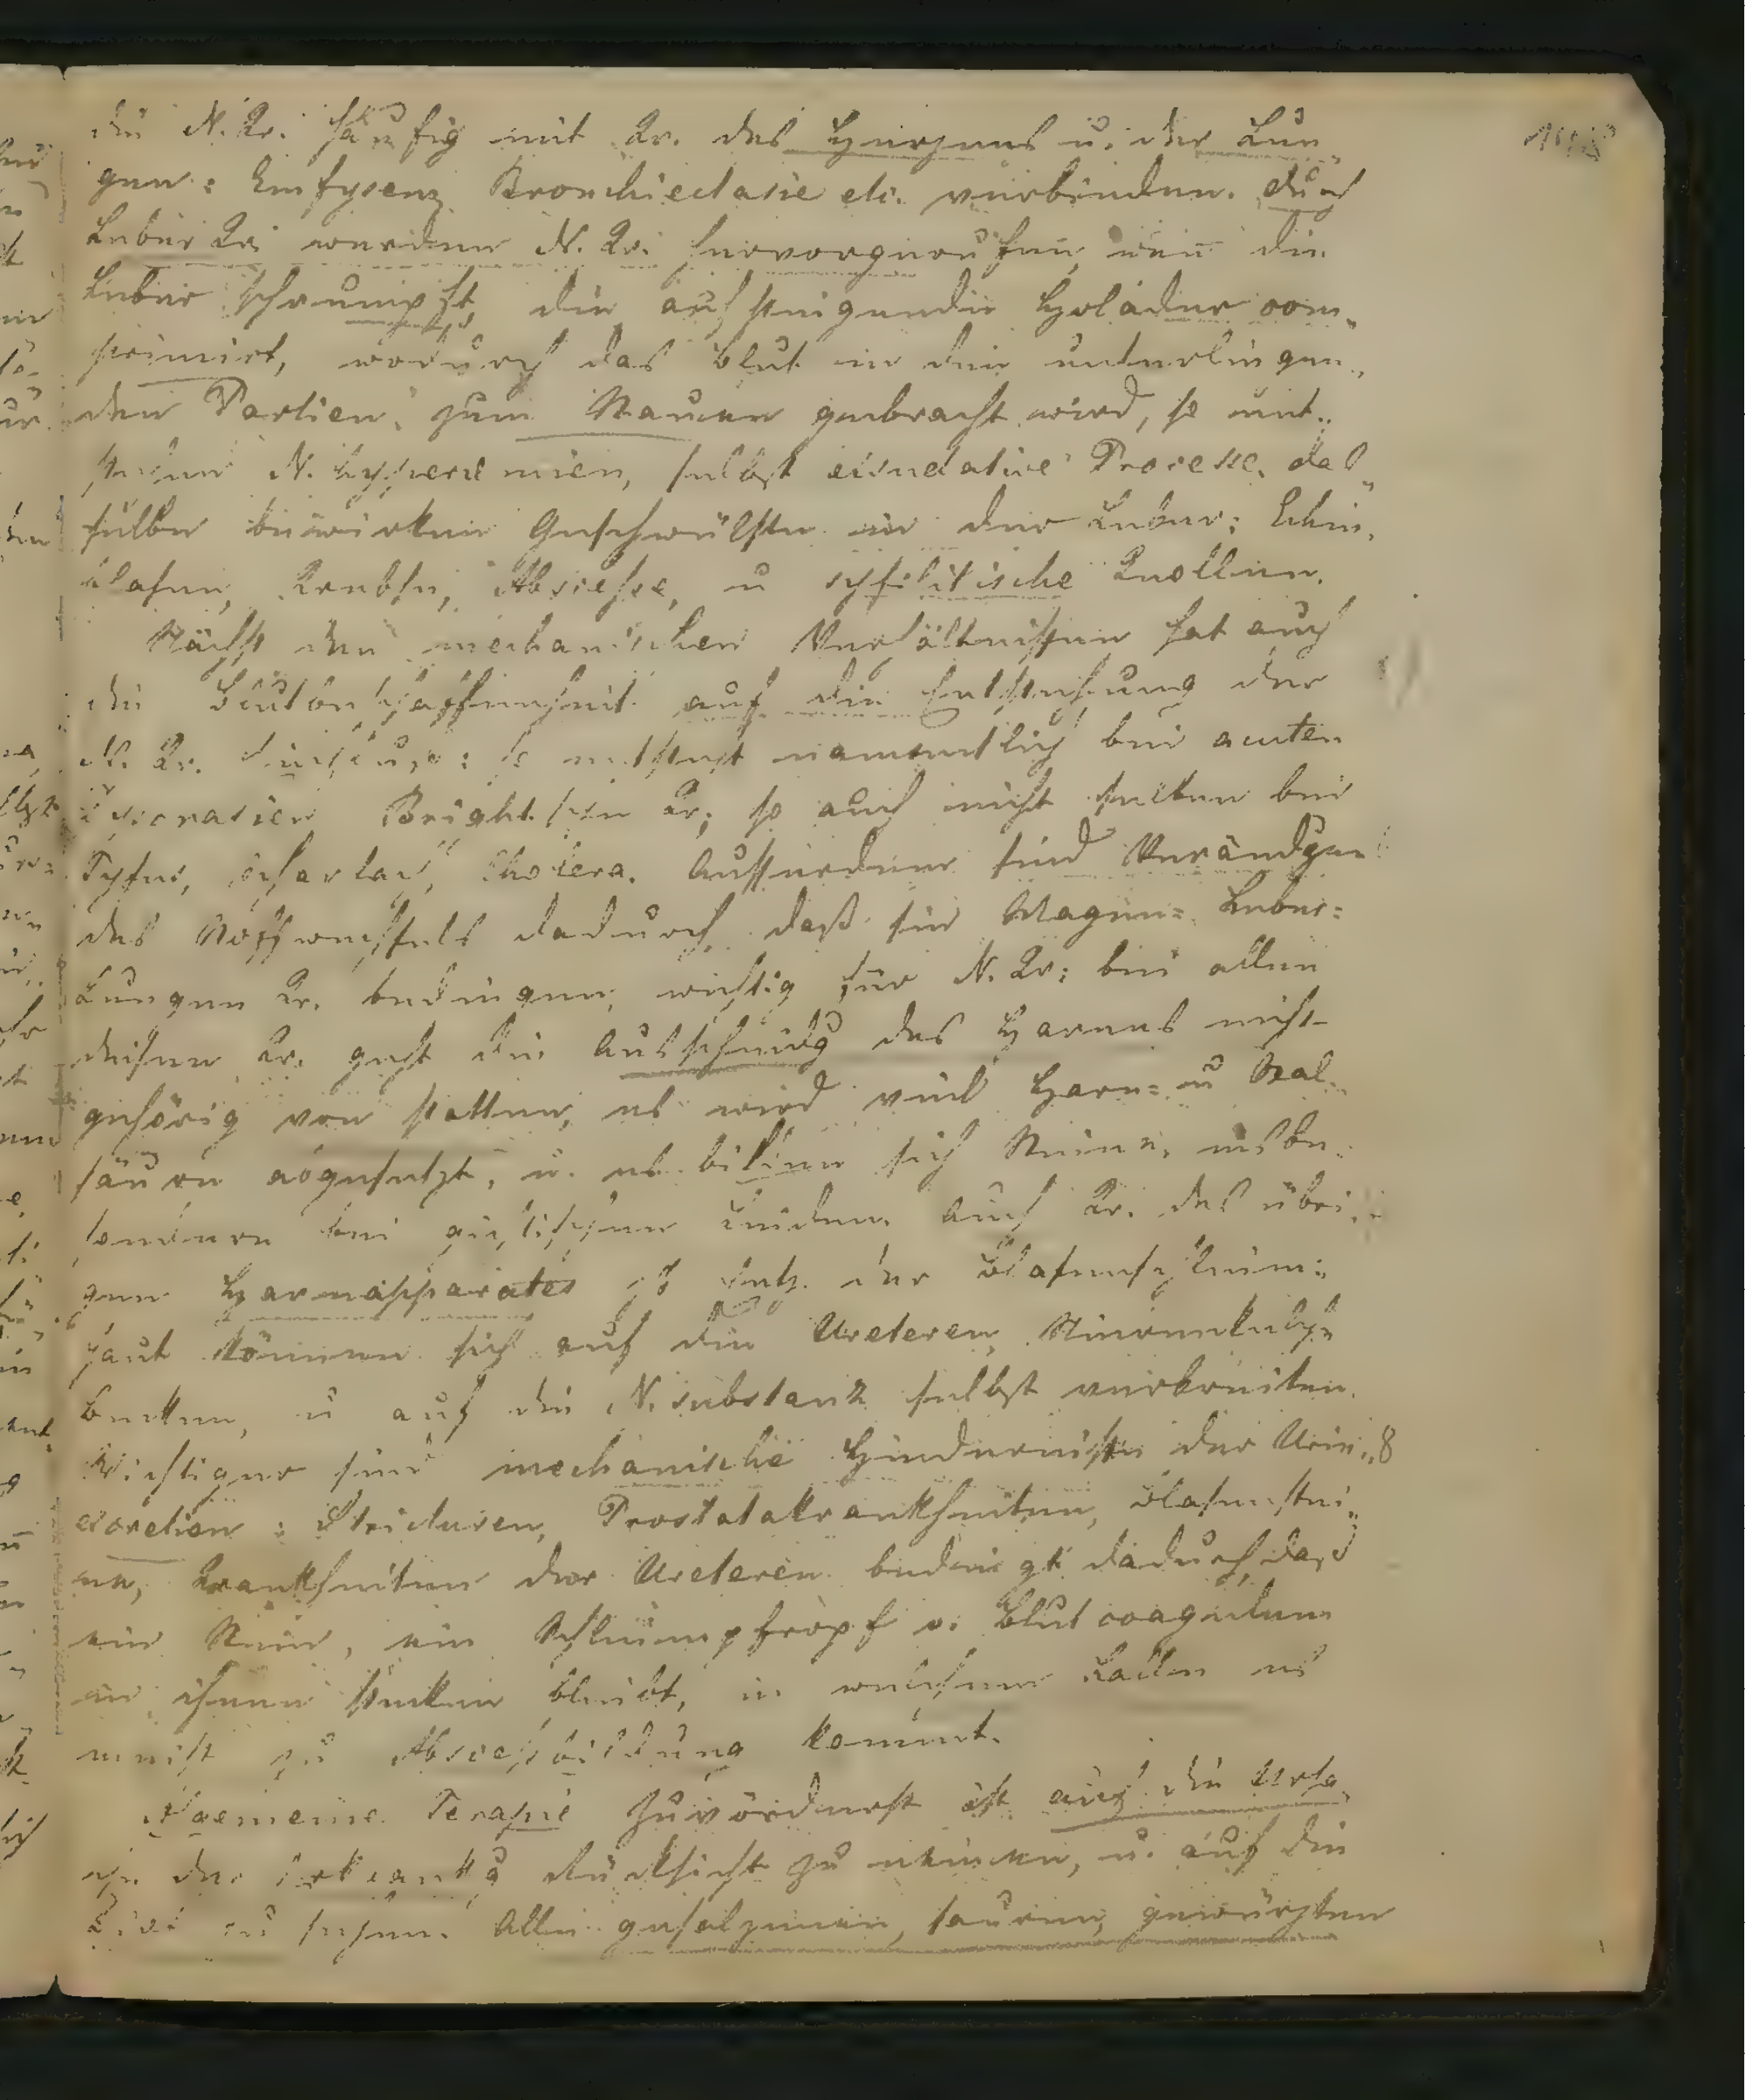 die N. Kr. häufig mit Kr. des Herzens u. der Lun„
gen: Emfysem, Bronchiectasie etc. verbinden. Auch
Leber Kr. werden N. Kr. hervorgerufen, wen̄ die
Leber schrumpft, die aufsteigende Holader com„
primirt, wodurch das Blut in den unterliegen„
den Partien zum Stauen gebracht wird, so ent„
stehen N. hyperemien, selbst exsudative Processe, das„
selbe bewirken Geschwülste in der Leber: Echin.
blasen, Krebse, Abscesse, u syfilitische Knollen.
Nächst den mechanischen Verhältnissen hat auch
die Blutbeschaffenheit auf die Entstehung der
N. Kr. Einfluss: so entsteht namentlich bei acuten
Dyscrasien Bright'sche Kr; so auch nicht selten bei
Tyfus, Scharlach, Cholera. Ausserdem sind Verändgen
des Stoffwechsels dadurch, daß sie Magen= Leber=
Lungen Kr. bedingen, wichtig für N. Kr: bei allen
diesen Kr. geht die Ausscheidg des Harnes nicht
gehörig von statten, es wird viel Harn= u Kal„
säure abgesetzt, u. es bilden sich Steine, insbe„
sondere bei gichtischen Leiden. Auch Kr. des übri„
gen Harnapparates der Blasenschleim„
haut können sich auf die Ureteren, Nierenkelche
Becken, u auf die N. substanz selbst verbreiten.
Wichtiger sind mechanische Hindernisse der Urin„8
excretion: Stricturen, Prostatakrankheiten, Blasenstei„
ne, Krankheiten der Ureteren bedingt dadurch, daß
ein Stein, ein Schleimpfropf o. Blutcoagulum
in ihnen stecken bleibt, in welchen Fällen es
meist zu Abscessbildung kommt.
Algemeine Terapie Zuvörderst ist auf die Ursa„
che der Erkrankg Rücksicht zu nehmen, u. auf die
Diät zu sehen. Alle gesalzenen, sauren, gewürzten